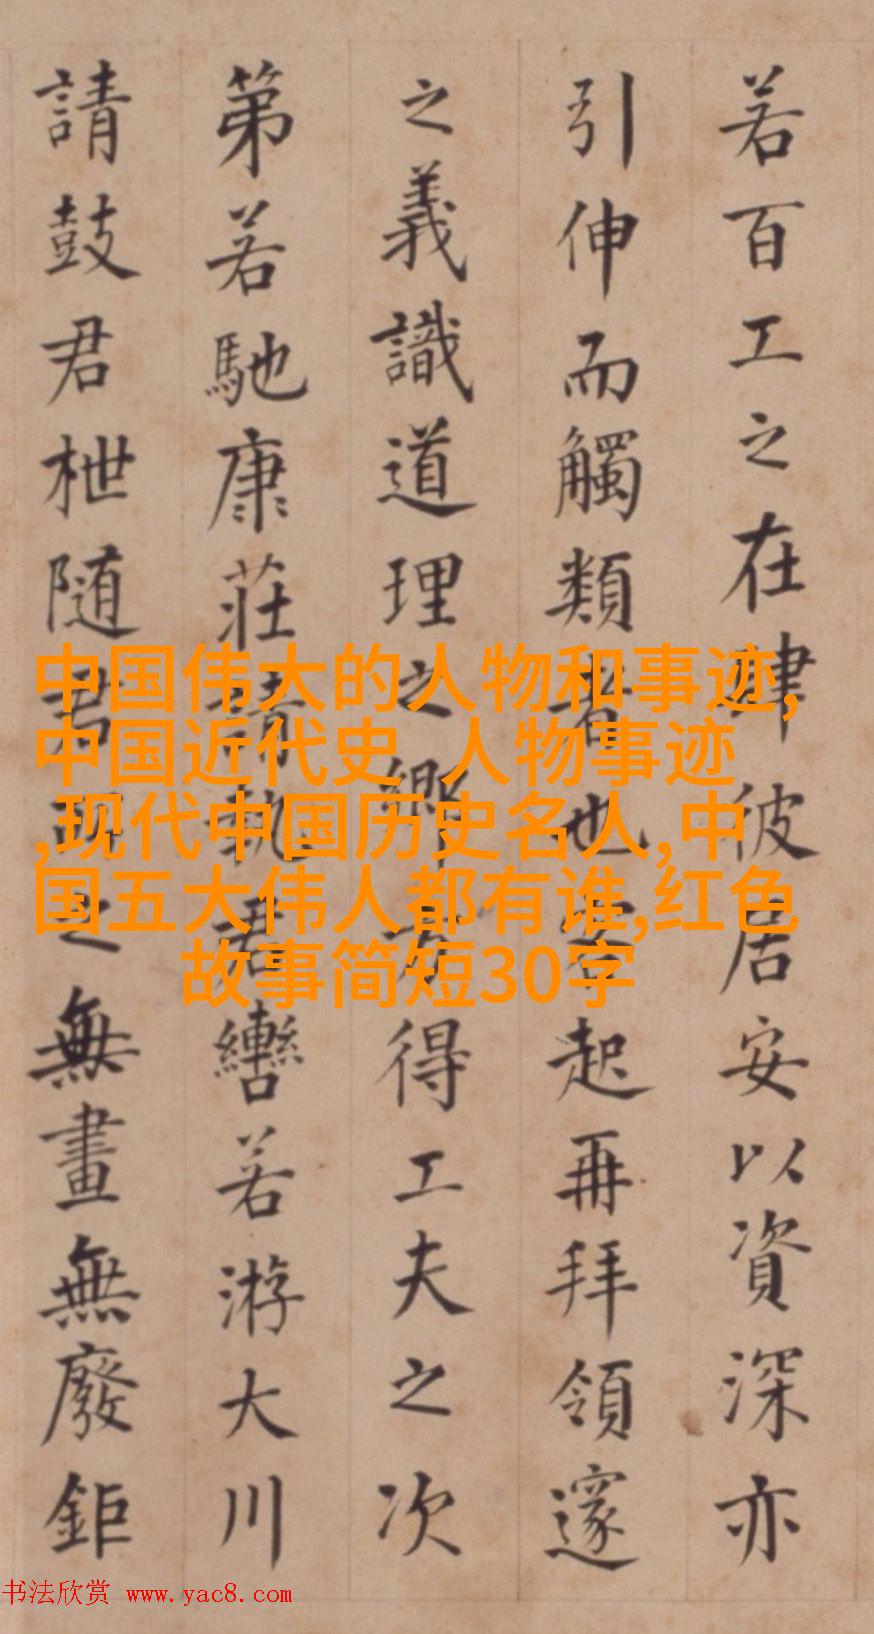 若百工之在肆彼居安以資深亦
引伸而觸類者也客起再拜領邃
之義識道理之鄉方得工夫之次
第若馳康莊請執君轡若游大川
請鼓君枻随君所之無畫無廢鉅
中国伟大的人物和事迹,
中国近代史 人物事迹
,现代中国历史名人,中
国五大伟人都有谁,红色
故事简短30字
书法欣赏 www.yac8.com